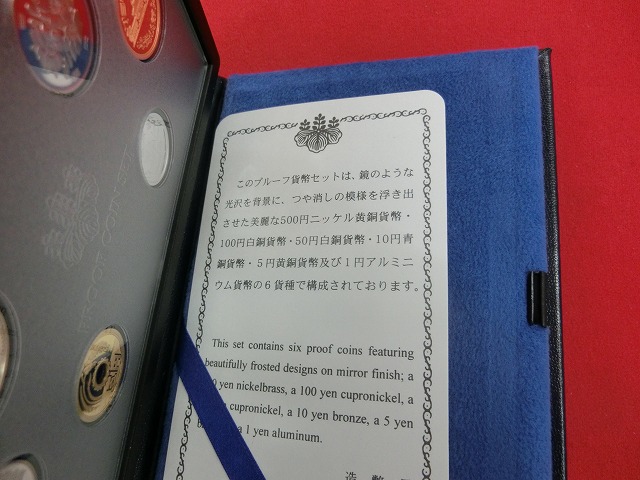 このプルーフ貨幣セットは、鏡のような
光沢を背景に、つや消しの模様を浮き出
させた美麗な500円ニッケル黄銅貨幣・
100円白銅貨幣・50円白銅貨幣・10円青
銅貨幣・5円黄銅貨幣及び1円アルミニ
ウム貨幣の6貨種で構成されております。
This set contains six proof coins featuring
beautifully frosted designs on mirror finish; a
yen nickelbrass, a 100 yen cupronickel, a
cupronickel, a 10 yen bronze, a 5 yen
a 1 yen aluminum.
造幣